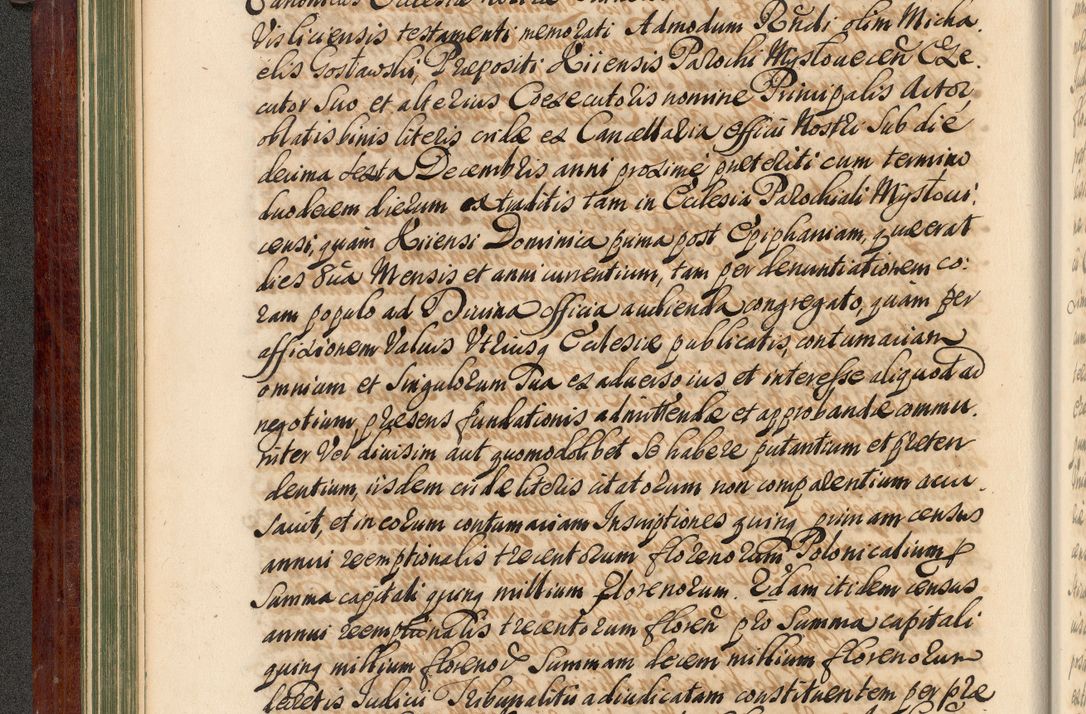 Canonicus Ecclesiæ nostræ
Visliciensis testamenti memorati Admodum Rñdi olim Micha
elis Gosławski, Præpositi Kiiensis Parochi Mysłovecen̄ Exe.
cutor Suo et alterius Coexecutoris nomine Principalis Actor,
oblatis binis literis cridæ ex Cancellaria officii Nostri Sub die
decima sexta Decembris anni proximè præteriti cum termino
duodecem dierum extraditis tam in Ecclesia Parochiali Mysłovi,
censi, quàm Kiiensi Dominica prima post Epiphaniam, quæ erat
dies 8ua Mensis et anni currentium, tam per denuntiationem co:
ram populo ad Divina officia audienda congregato, quàm per
affixionem Valvis Utriusq Ecclesiæ publicatis, contumaciam
omnium et Singulorum Sua ex adverso jus et interesse aliquod ad
negotium præsens fundationis admittendæ et approbandæ commu.
niter Vel divisim aut quomodolibet Se habere putantium et præten
dentium, iisdem cridæ literis citatorum non comparentium accu.
Savit, et in eorum contumaciam Inscriptiones quinq primam census
annui reemptionalis trecentorum florenorum Polonicalium p
Summa capitali quinq millium florenorum. 2dam itidem census
annui reemptionalis trecentorum floren̄ pro Summa capitali
quinq millium florenor Summam decem millium florenorum
decretis Judicii Tribunalitii adiudicatam constituentem per præ